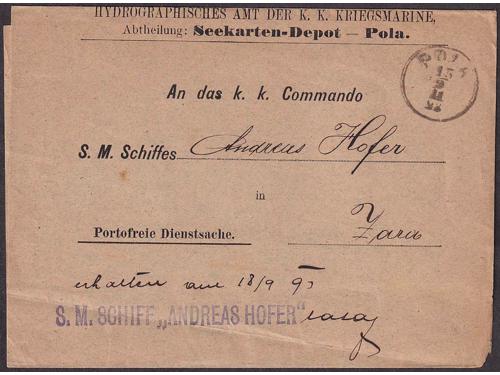 HYDROGRAPHISCHES AMT DER K. K. KRIEGSMARINE,
Abtheilung: Seekarten-Depot — Pola.
POLA
15
9
An das k. k. Commando
S. M. Schiffes Andreas Hofer
in
Zara
Portofreie Dienstsache.
erhalten am 18/9 95
S. M. SCHIFF „ANDREAS HOFER"